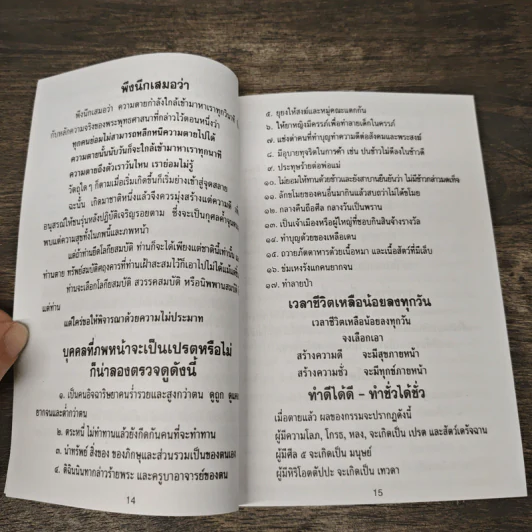 พึงนึกเสมอว่า
พึงนึกเสมอว่า ความตายกำลังใกล้เข้ามาหาเราทุกวินาที
กับหลักความจริงของพระพุทธศาสนาที่กล่าวไว้ตอนหนึ่งว่า
ทุกคนย่อมไม่สามารถหลีกหนีความตายไปได้
ความตายนั้นนับวันก็จะใกล้เข้ามาหาเราทุกนาที
ความตายถึงตัวเราวันไหน เราย่อมไม่รู้
วัตถุใด ๆ ก็ตามเมื่อเริ่มเกิดขึ้นก็เริ่มย่างเข้าสู่จุดสลาย
ฉะนั้น เกิดมาชาติหนึ่งแล้วจึงควรมุ่งสร้างแต่ความดี
อนุสรณ์ให้ชนรุ่นหลังปฏิบัติเจริญรอยตาม ซึ่งจะเป็นกุศลค้ำจุน
พบแต่ความสุขทั้งในภพนี้และภพหน้า
แต่ถ้าท่านยึดโลกียสมบัติ ท่านก็จะได้เพียงแค่ชาตินี้เท่านั้น
ท่านตาย ทรัพย์สมบัติศฤงคารที่ท่านเฝ้าสะสมไว้ก็เอาไปไม่ได้แม้แต่
ท่านจะเลือกโลกียสมบัติ สวรรคสมบัติ หรือนิพพานสมบัติ
แต่ท่าน
แต่ใคร่ขอให้พิจารณาด้วยความไม่ประมาท
บุคคลที่ภพหน้าจะเป็นเปรตหรือไม่
ก็น่าลองตรวจดูดังนี้
๑. เป็นคนอิจฉาริษยาคนร่ำรวยและสูงกว่าตน ดูถูก ดูแคลน
ยากจนและต่ำกว่าตน
๒. ตระหนี่ ไม่ทำทานแล้วยังกีดกันคนที่จะทำทาน
๓. นำทรัพย์ สิ่งของ ของภิกษุและส่วนรวมเป็นของตนเอง
๔. ติฉินนินทากล่าวร้ายพระ และครูบาอาจารย์ของตน
14
๕. ยุยงให้สงฆ์และหมู่คณะแตกกัน
๖. ให้ยาหญิงมีครรภ์เพื่อทำลายเด็กในครรภ์
๗. แช่งด่าคนที่ทำบุญทำความดีต่อสังคมและพระสงฆ์
๘. มีอุบายทุจริตในการค้า เช่น ปนข้าวไม่ดีลงในข้าวดี
๙. ประทุษร้ายต่อพ่อแม่
๑๐. ไม่ยอมให้ทานด้วยข้าวและยังสาบานยืนยันว่า ไม่มีข้าวกล่าวมดเท็จ
๑๑. ลักขโมยของคนอื่นมากินแล้วสบถว่าไม่ได้ขโมย
๑๒. กลางคืนถือศีล กลางวันเป็นพราน
๑๓. เป็นเจ้าเมืองหรือผู้ใหญ่ที่ชอบกินสินจ้างรางวัล
๑๔. ทำบุญด้วยของเหลือเดน
๑๕. ถวายภัตตาหารด้วยเนื้อหมา และเนื้อสัตว์ที่มีเล็บ
๑๖. ข่มเหงรังแกคนยากจน
๑๗. ทำลายป่า
เวลาชีวิตเหลือน้อยลงทุกวัน
เวลาชีวิตเหลือน้อยลงทุกวัน
จงเลือกเอา
สร้างความดี จะมีสุขภายหน้า
สร้างความชั่ว จะมีทุกข์ภายหน้า
ทำดีได้ดี - ทำชั่วได้ชั่ว
เมื่อตายแล้ว ผลของกรรมจะปรากฏดังนี้
ผู้มีความโลภ, โกรธ, หลง, จะเกิดเป็น เปรต และสัตว์เดรัจฉาน
ผู้มีศีล ๕ จะเกิดเป็น มนุษย์
ผู้มีหิริโอตตัปปะ จะเกิดเป็น เทวดา
15